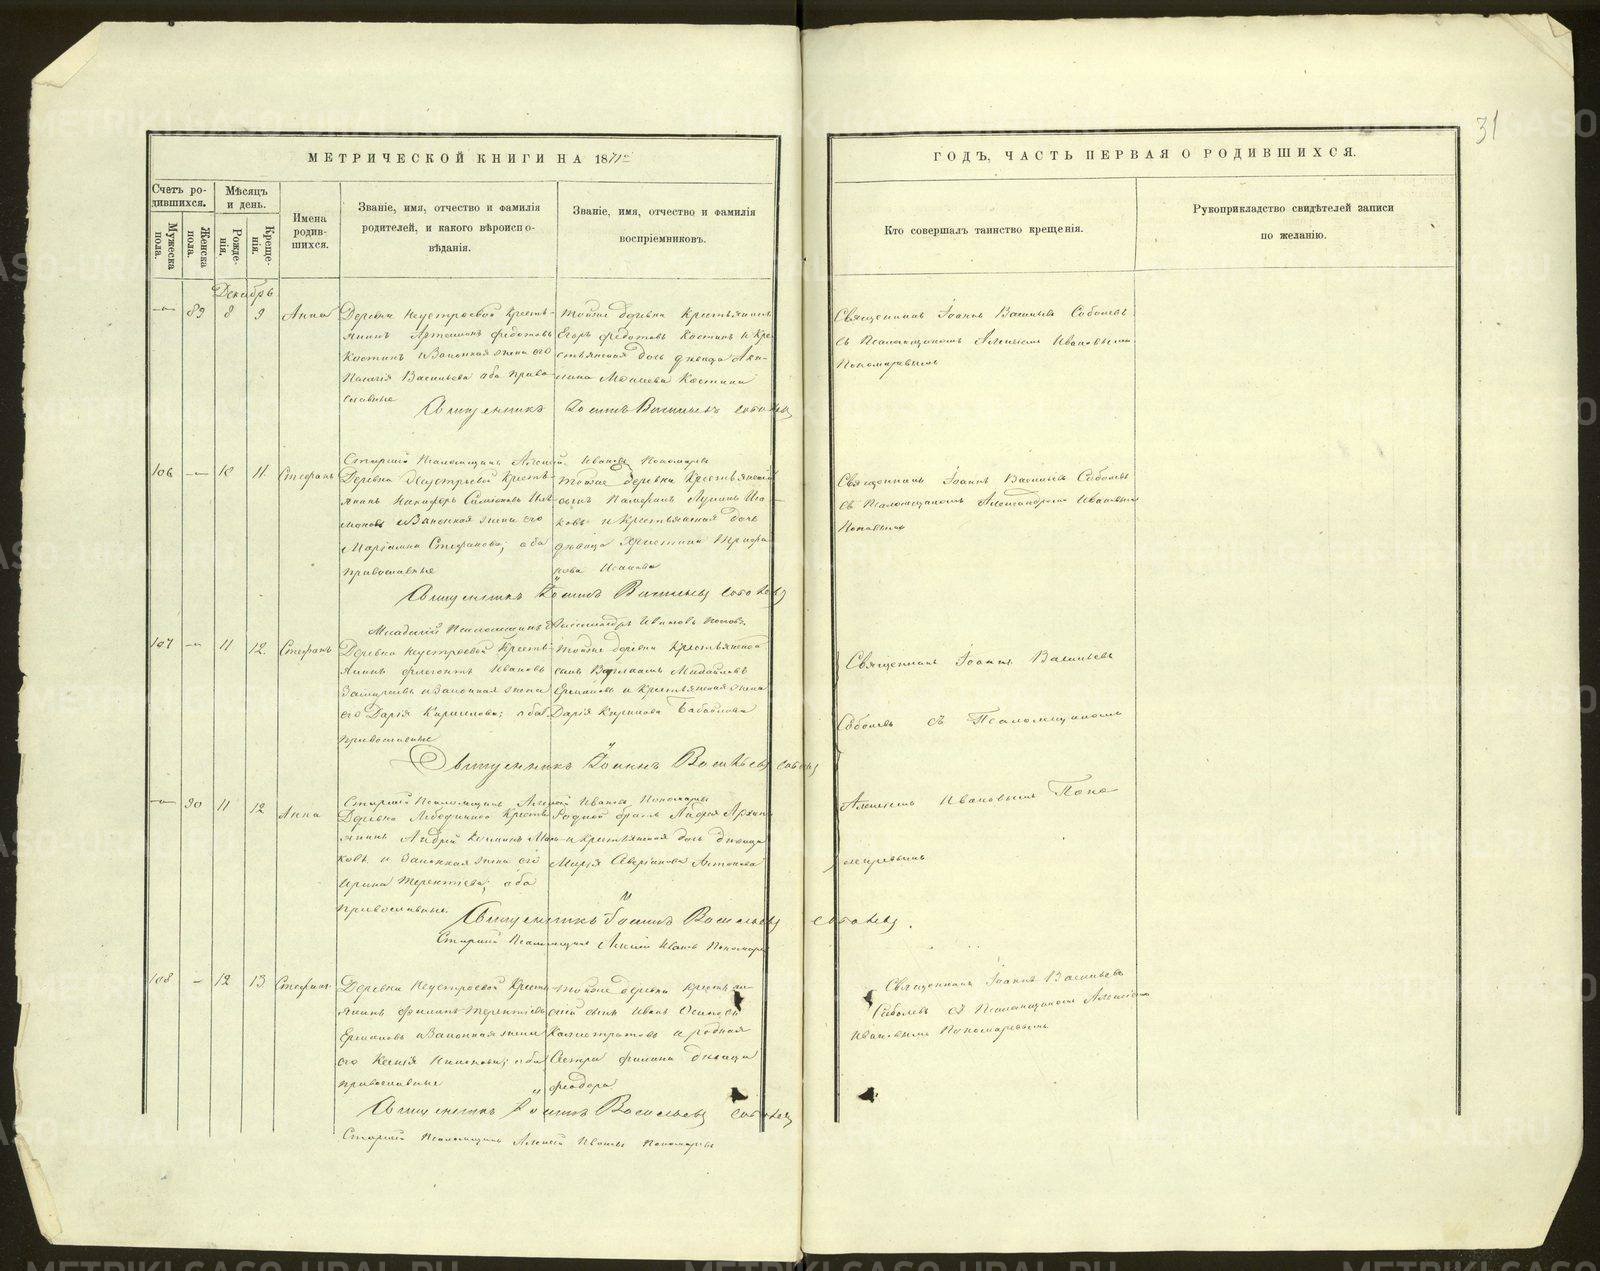 31
МЕТРИЧЕСКОЙ КНИГИ НА 1871й
ГОДЪ, ЧАСТЬ ПЕРВАЯ О РОДИВШИХСЯ.
Счетъ ро-
дившихся.
Мужеска
пола.
Женска
пола.
Мѣсяцъ
и день.
Рожде-
нія.
Креще-
нія.
Имена
родив-
шихся.
Званіе, имя, отчество и фамилія
родителей, и какого вѣроиспо-
вѣданія.
Званіе, имя, отчество и фамилія
воспріемниковъ.
Кто совершалъ таинство крещенія.
Рукоприкладство свидѣтелей записи
по желанію.
Декабрь
— 89 8 9 Анна
Деревни Неустроевой Кресть-
янинъ Федотовъ
Костинъ и Законная жена его
Васильева оба Право-
славные
Тойже деревни Крестьянинъ
Егоръ Федотовъ Костинъ и Кре-
стьянская дочь дѣвица
Моисеева Костина
Священникъ Іоаннъ Васильевъ Соболевъ
съ Псаломщикомъ Алексѣемъ Ивановымъ
Пономаревымъ
Священникъ Іоаннъ Васильевъ Соболевъ
Старшій Псаломщикъ Алексѣй Ивановъ Пономаревъ
106 — 10 11 Стефанъ
Деревни Неустроевой Кресть-
янинъ Никифоръ
и Законная жена его
Стефанова; оба
православные
Тойже деревни Крестьянской
сынъ
и Крестьянская дочь
дѣвица Христина
Исакова
Священникъ Іоаннъ Васильевъ Соболевъ
съ Псаломщикомъ Александромъ Ивановымъ
Поповымъ
Священникъ Іоаннъ Васильевъ Соболевъ
Младшій Псаломщикъ Александръ Ивановъ Поповъ
107 — 11 12 Стефанъ
Деревни Неустроевой Кресть-
янинъ Ивановъ
и Законная жена
его Дарія Кирилова; оба
православные
Тойже деревни Крестьянской
сынъ Михайловъ
Ермаковъ и Крестьянская жена
Дарія Кирилова
Священникъ Іоаннъ Васильевъ
Соболевъ съ Псаломщикомъ
Священникъ Іоаннъ Васильевъ Соболевъ
Старшій Псаломщикъ Алексѣй Ивановъ Пономаревъ
— 90 11 12 Анна
Деревни Кресть-
янинъ Андрей
и Законная жена его
Ирина Терентіева; оба
православные
Родной братъ Андрея
и крестьянская дочь дѣвица
Марія Аверіанова Антонова
Алексѣемъ Ивановымъ Поно-
маревымъ
Священникъ Іоаннъ Васильевъ Соболевъ.
Старшій Псаломщикъ Алексѣй Ивановъ Пономаревъ
108 — 12 13 Стефанъ
Деревни Неустроевой Кресть-
янинъ Филипъ Терентіевъ
Ермаковъ и Законная жена
его Ксенія оба
православные
Тойже деревни Крестьян-
ской сынъ Иванъ Осиповъ
Калистратовъ и родная
сестра Филипа дѣвица
Феодора
Священникъ Іоаннъ Васильевъ
Соболевъ съ Псаломщикомъ Алексѣемъ
Ивановымъ Пономаревымъ
Священникъ Іоаннъ Васильевъ Соболевъ
Старшій Псаломщикъ Алексѣй Ивановъ Пономаревъ
METRIKI.GASO-URAL.RU